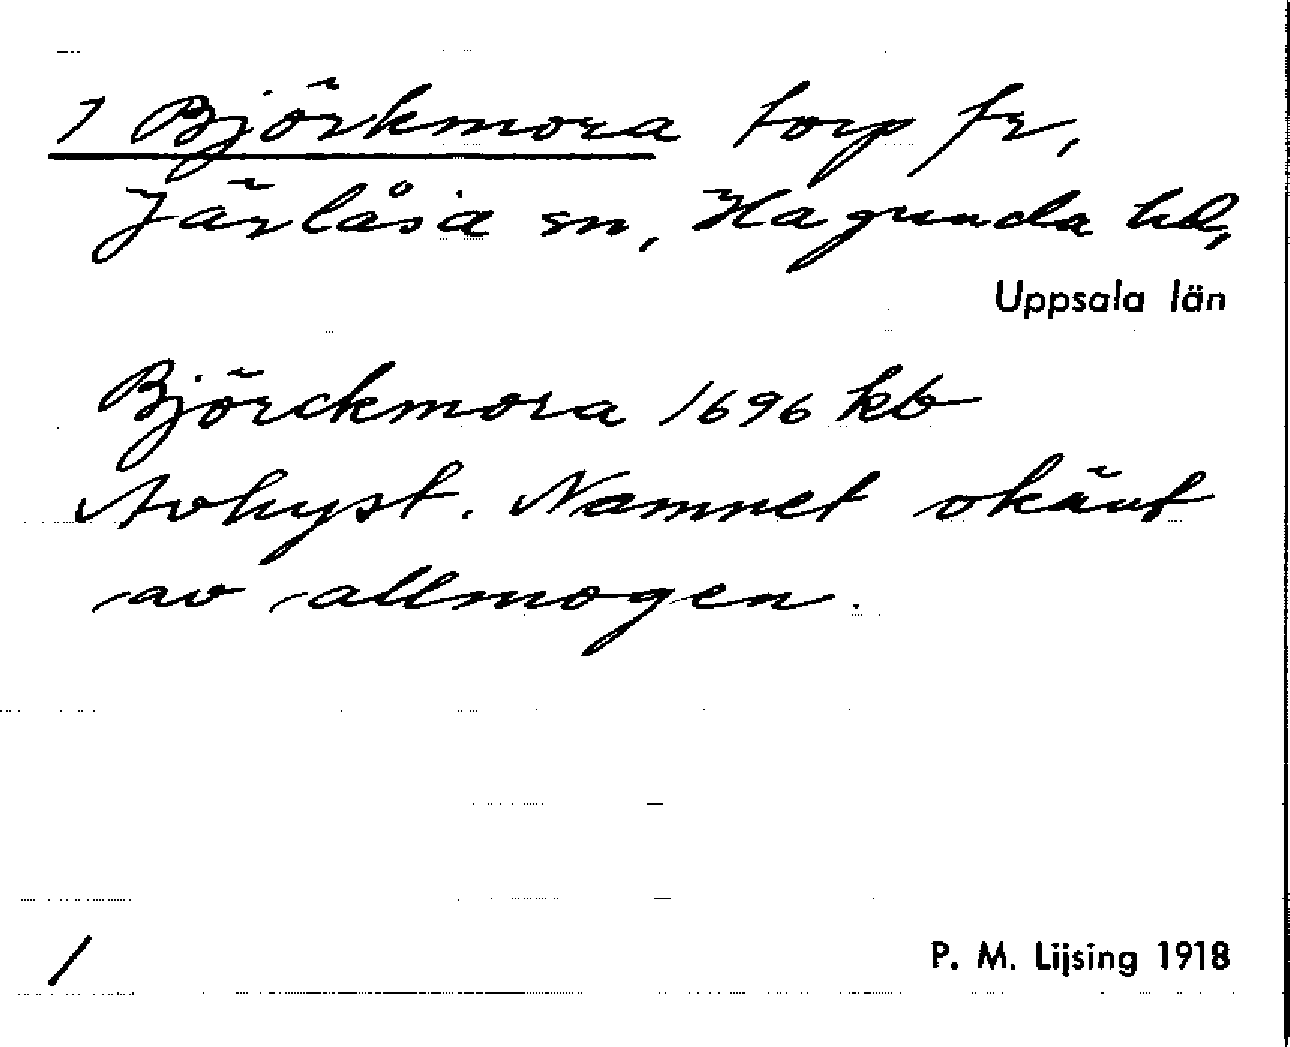 1 Björkmora torp fr,
Järlåsa sn, Hagunda hd,
Uppsala län
Björckmora 1696 kb
Avhyst. Namnet okänt
av allmogen.
/
P. M. Lijsing 1918